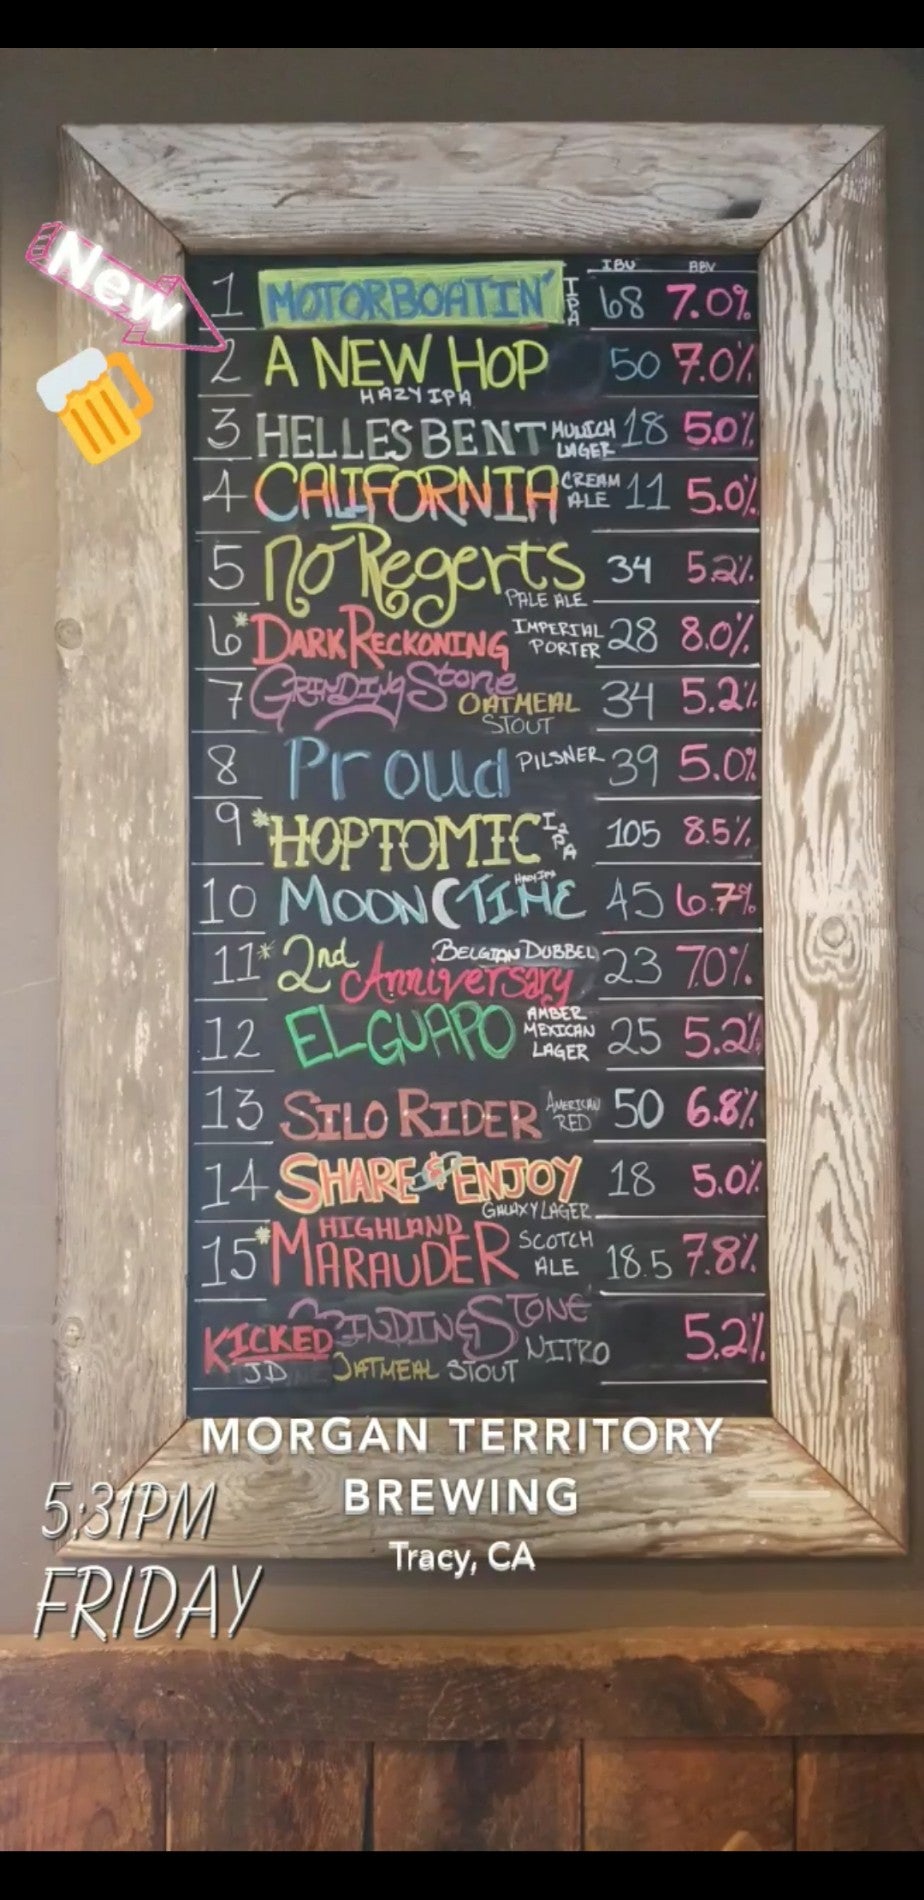 New
IBU ABV
1 MOTORBOATIN' IPA 68 7.0%
2 A NEW HOP 50 7.0%
HAZY IPA
3 HELLES BENT MUNICH LAGER 18 5.0%
4 CALIFORNIA CREAM ALE 11 5.0%
5 No Regerts 34 5.2%
PALE ALE
6* DARK RECKONING IMPERIAL PORTER 28 8.0%
7 GRINDING Stone OATMEAL STOUT 34 5.2%
8 Proud PILSNER 39 5.0%
9 *HOPTOMIC I2PA 105 8.5%
10 MOON TIME HAZY IPA 45 6.7%
11* 2nd Anniversary BELGIAN DUBBEL 23 7.0%
12 EL GUAPO AMBER MEXICAN LAGER 25 5.2%
13 SILO RIDER AMERICAN RED 50 6.8%
14 SHARE & ENJOY 18 5.0%
GALAXY LAGER
15* HIGHLAND MARAUDER SCOTCH ALE 18.5 7.8%
KICKED GRINDING STONE NITRO 5.2%
JD OATMEAL STOUT
MORGAN TERRITORY
BREWING
Tracy, CA
5:31PM
FRIDAY